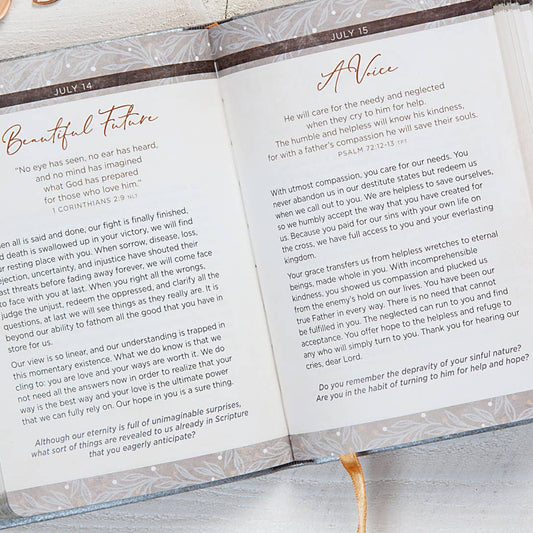 JULY 14
Beautiful Future
"No eye has seen, no ear has heard,
and no mind has imagined
what God has prepared
for those who love him."
1 CORINTHIANS 2:9 NLT
all is said and done, our fight is finally finished,
death is swallowed up in your victory, we will find
resting place with you. When sorrow, disease, loss,
uncertainty, and injustice have shouted their
threats before fading away forever, we will come face
to face with you at last. When you right all the wrongs,
judge the unjust, redeem the oppressed, and clarify all the
questions, at last we will see things as they really are. It is
beyond our ability to fathom all the good that you have in
store for us.
Our view is so linear, and our understanding is trapped in
this momentary existence. What we do know is that we
cling to: you are love and your ways are worth it. We do
not need all the answers now in order to realize that your
way is the best way and your love is the ultimate power
that we can fully rely on. Our hope in you is a sure thing.
Although our eternity is full of unimaginable surprises,
what sort of things are revealed to us already in Scripture
that you eagerly anticipate?
JULY 15
A Voice
He will care for the needy and neglected
when they cry to him for help.
The humble and helpless will know his kindness,
for with a father's compassion he will save their souls.
PSALM 72:12-13 TPT
With utmost compassion, you care for our needs. You
never abandon us in our destitute states but redeem us
when we call out to you. We are helpless to save ourselves,
so we humbly accept the way that you have created for
us. Because you paid for our sins with your own life on
the cross, we have full access to you and your everlasting
kingdom.
Your grace transfers us from helpless wretches to eternal
beings, made whole in you. With incomprehensible
kindness, you showed us compassion and plucked us
from the enemy's hold on our lives. You have been our
true Father in every way. There is no need that cannot
be fulfilled in you. The neglected can run to you and find
acceptance. You offer hope to the helpless and refuge to
any who will simply turn to you. Thank you for hearing our
cries, dear Lord.
Do you remember the depravity of your sinful nature?
Are you in the habit of turning to him for help and hope?